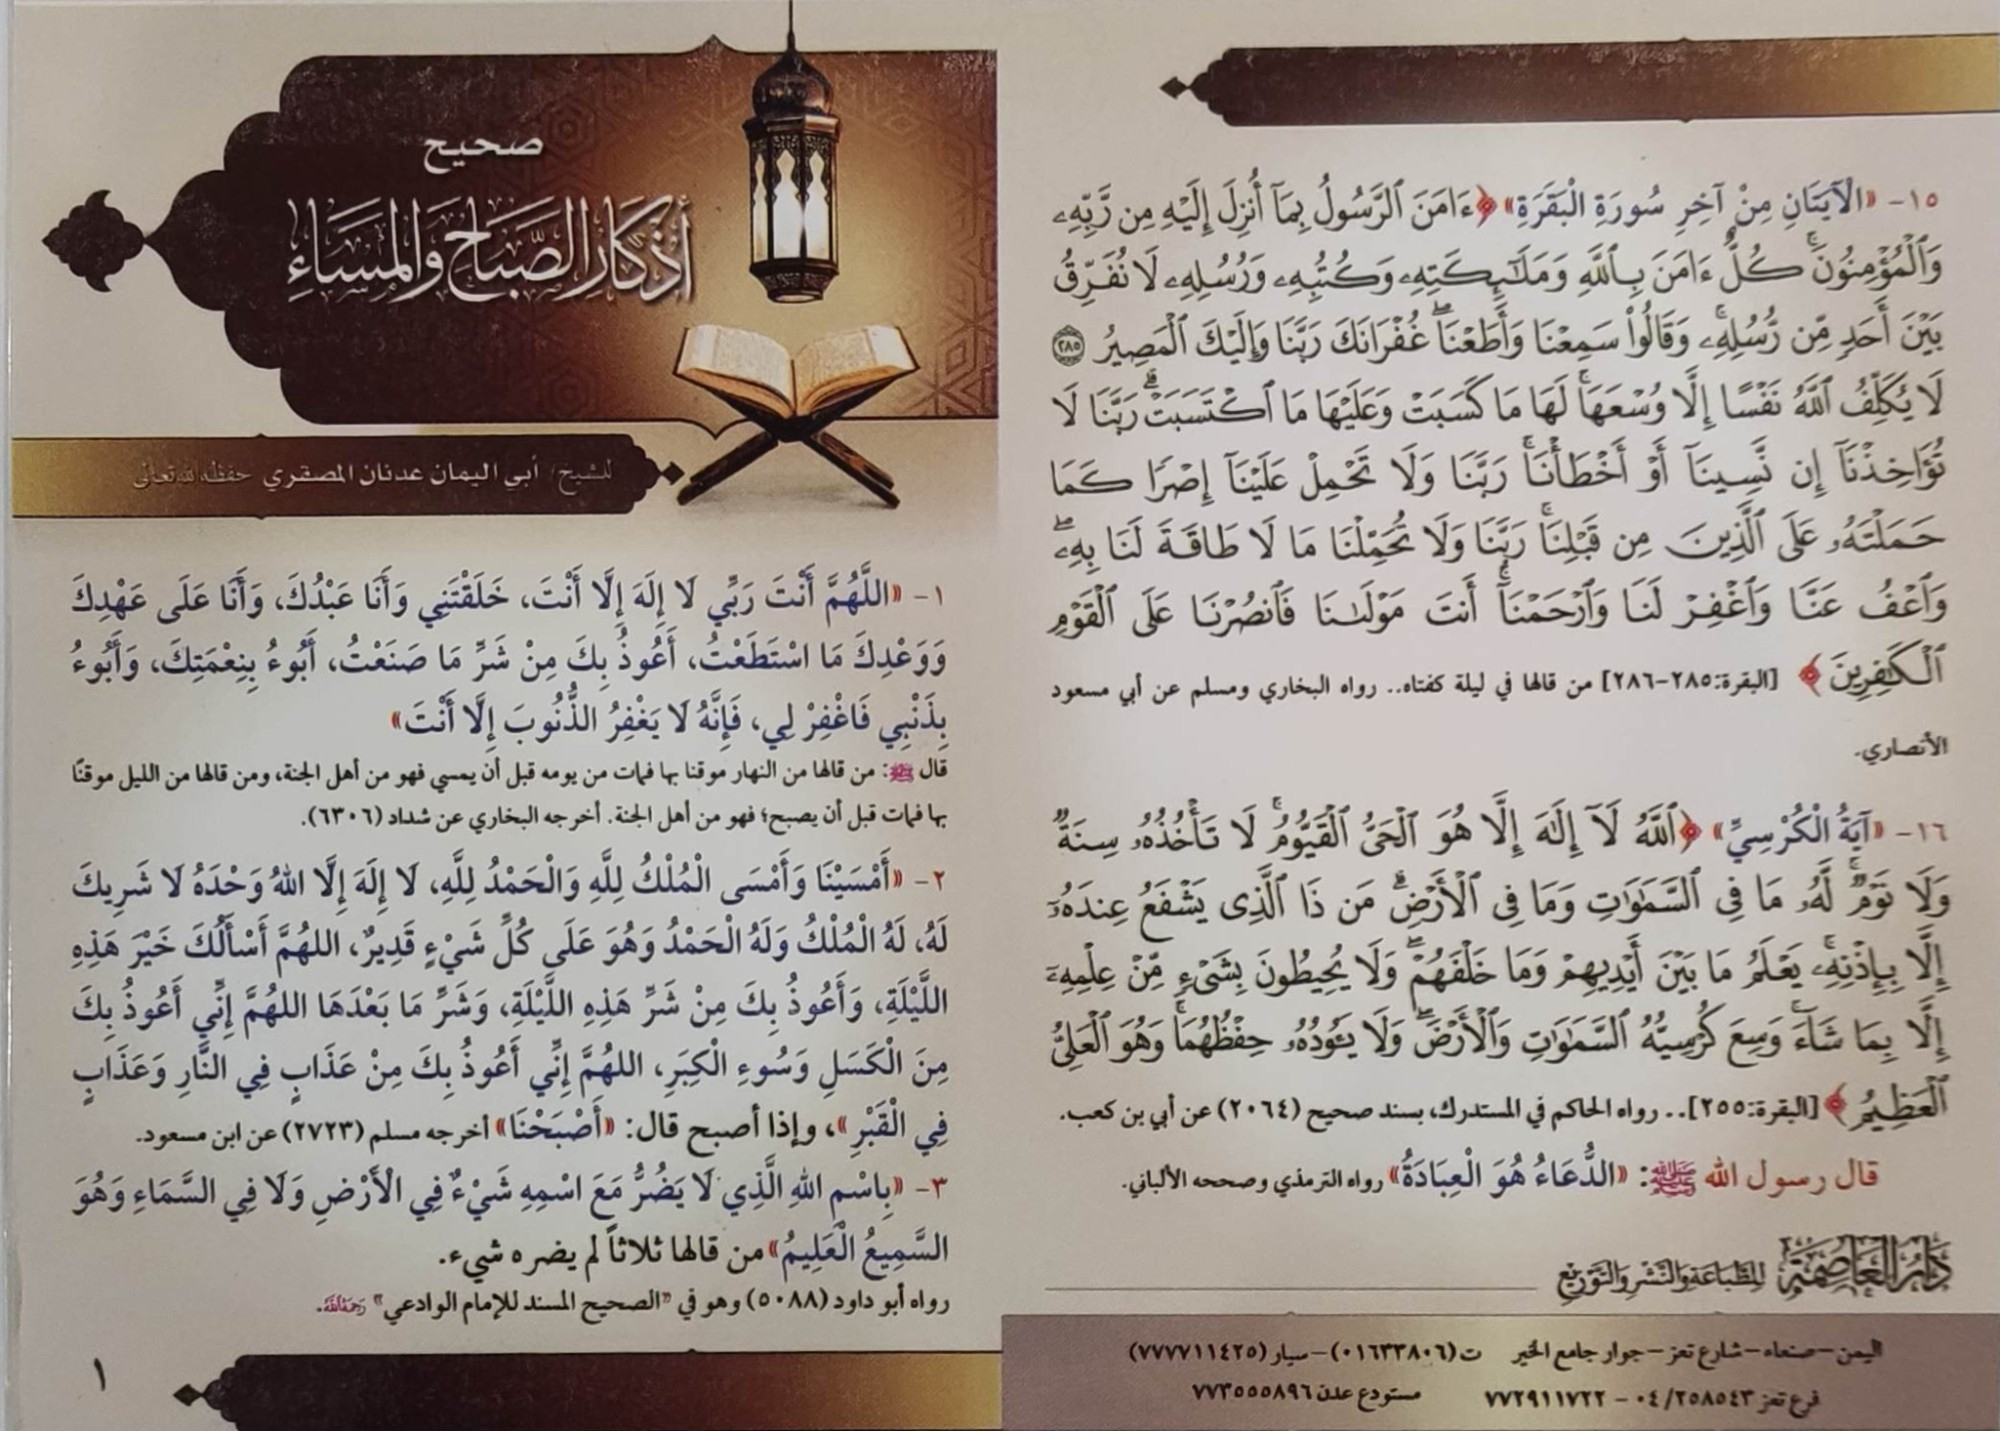 صحيح
أذكار الصباح والمساء
للشيخ/ أبي اليمان عدنان المصقري حفظه الله تعالى
١- «اللَّهُمَّ أَنْتَ رَبِّي لَا إِلَهَ إِلَّا أَنْتَ، خَلَقْتَنِي وَأَنَا عَبْدُكَ، وَأَنَا عَلَى عَهْدِكَ
وَوَعْدِكَ مَا اسْتَطَعْتُ، أَعُوذُ بِكَ مِنْ شَرِّ مَا صَنَعْتُ، أَبُوءُ بِنِعْمَتِكَ، وَأَبُوءُ
بِذَنْبِي فَاغْفِرْ لِي، فَإِنَّهُ لَا يَغْفِرُ الذُّنُوبَ إِلَّا أَنْتَ»
قال ﷺ: من قالها من النهار موقنا بها فمات من يومه قبل أن يمسي فهو من أهل الجنة، ومن قالها من الليل موقنًا
بها فمات قبل أن يصبح؛ فهو من أهل الجنة. أخرجه البخاري عن شداد (٦٣٠٦).
٢- «أَمْسَيْنَا وَأَمْسَى الْمُلْكُ لِلَّهِ وَالْحَمْدُ لِلَّهِ، لَا إِلَهَ إِلَّا اللهُ وَحْدَهُ لَا شَرِيكَ
لَهُ، لَهُ الْمُلْكُ وَلَهُ الْحَمْدُ وَهُوَ عَلَى كُلِّ شَيْءٍ قَدِيرٌ، اللهُمَّ أَسْأَلُكَ خَيْرَ هَذِهِ
اللَّيْلَةِ، وَأَعُوذُ بِكَ مِنْ شَرِّ هَذِهِ اللَّيْلَةِ، وَشَرِّ مَا بَعْدَهَا اللهُمَّ إِنِّي أَعُوذُ بِكَ
مِنَ الْكَسَلِ وَسُوءِ الْكِبَرِ، اللهُمَّ إِنِّي أَعُوذُ بِكَ مِنْ عَذَابٍ فِي النَّارِ وَعَذَابٍ
فِي الْقَبْرِ»، وإذا أصبح قال: «أَصْبَحْنَا» أخرجه مسلم (٢٧٢٣) عن ابن مسعود.
٣- «بِاسْمِ اللهِ الَّذِي لَا يَضُرُّ مَعَ اسْمِهِ شَيْءٌ فِي الْأَرْضِ وَلَا فِي السَّمَاءِ وَهُوَ
السَّمِيعُ الْعَلِيمُ» من قالها ثلاثاً لم يضره شيء.
رواه أبو داود (٥٠٨٨) وهو في «الصحيح المسند للإمام الوادعي» رحمه الله.
١
١٥- «الْآيَتَانِ مِنْ آخِرِ سُورَةِ الْبَقَرَةِ» ﴿ءَامَنَ ٱلرَّسُولُ بِمَآ أُنزِلَ إِلَيْهِ مِن رَّبِّهِۦ
وَٱلْمُؤْمِنُونَۚ كُلٌّ ءَامَنَ بِٱللَّهِ وَمَلَـٰٓئِكَتِهِۦ وَكُتُبِهِۦ وَرُسُلِهِۦ لَا نُفَرِّقُ
بَيْنَ أَحَدٍ مِّن رُّسُلِهِۦۚ وَقَالُوا۟ سَمِعْنَا وَأَطَعْنَاۖ غُفْرَانَكَ رَبَّنَا وَإِلَيْكَ ٱلْمَصِيرُ ٢٨٥
لَا يُكَلِّفُ ٱللَّهُ نَفْسًا إِلَّا وُسْعَهَاۚ لَهَا مَا كَسَبَتْ وَعَلَيْهَا مَا ٱكْتَسَبَتْۗ رَبَّنَا لَا
تُؤَاخِذْنَآ إِن نَّسِينَآ أَوْ أَخْطَأْنَاۚ رَبَّنَا وَلَا تَحْمِلْ عَلَيْنَآ إِصْرًا كَمَا
حَمَلْتَهُۥ عَلَى ٱلَّذِينَ مِن قَبْلِنَاۚ رَبَّنَا وَلَا تُحَمِّلْنَا مَا لَا طَاقَةَ لَنَا بِهِۦۖ
وَٱعْفُ عَنَّا وَٱغْفِرْ لَنَا وَٱرْحَمْنَآۚ أَنتَ مَوْلَىٰنَا فَٱنصُرْنَا عَلَى ٱلْقَوْمِ
ٱلْكَـٰفِرِينَ﴾ [البقرة:٢٨٥-٢٨٦] من قالها في ليلة كفتاه.. رواه البخاري ومسلم عن أبي مسعود
الأنصاري.
١٦- «آيَةُ الْكُرْسِيِّ» ﴿ٱللَّهُ لَآ إِلَـٰهَ إِلَّا هُوَ ٱلْحَىُّ ٱلْقَيُّومُۚ لَا تَأْخُذُهُۥ سِنَةٌ
وَلَا نَوْمٌۚ لَّهُۥ مَا فِى ٱلسَّمَـٰوَٰتِ وَمَا فِى ٱلْأَرْضِۗ مَن ذَا ٱلَّذِى يَشْفَعُ عِندَهُۥٓ
إِلَّا بِإِذْنِهِۦۚ يَعْلَمُ مَا بَيْنَ أَيْدِيهِمْ وَمَا خَلْفَهُمْۖ وَلَا يُحِيطُونَ بِشَىْءٍ مِّنْ عِلْمِهِۦٓ
إِلَّا بِمَا شَآءَۚ وَسِعَ كُرْسِيُّهُ ٱلسَّمَـٰوَٰتِ وَٱلْأَرْضَۖ وَلَا يَـُٔودُهُۥ حِفْظُهُمَاۚ وَهُوَ ٱلْعَلِىُّ
ٱلْعَظِيمُ﴾ [البقرة:٢٥٥].. رواه الحاكم في المستدرك، بسند صحيح (٢٠٦٤) عن أبي بن كعب.
قال رسول الله ﷺ: «الدُّعَاءُ هُوَ الْعِبَادَةُ» رواه الترمذي وصححه الألباني.
دار العاصمة للطباعة والنشر والتوزيع
اليمن-صنعاء-شارع تعز-جوار جامع الخير ت(٠١٦٣٣٨٠٦)-سيار (٧٧٧٧١١٤٢٥)
فرع تعز ٠٤/٢٥٨٥٤٣ - ٧٧٢٩١١٧٢٢ مستودع عدن ٧٧٣٥٥٥٨٩٦